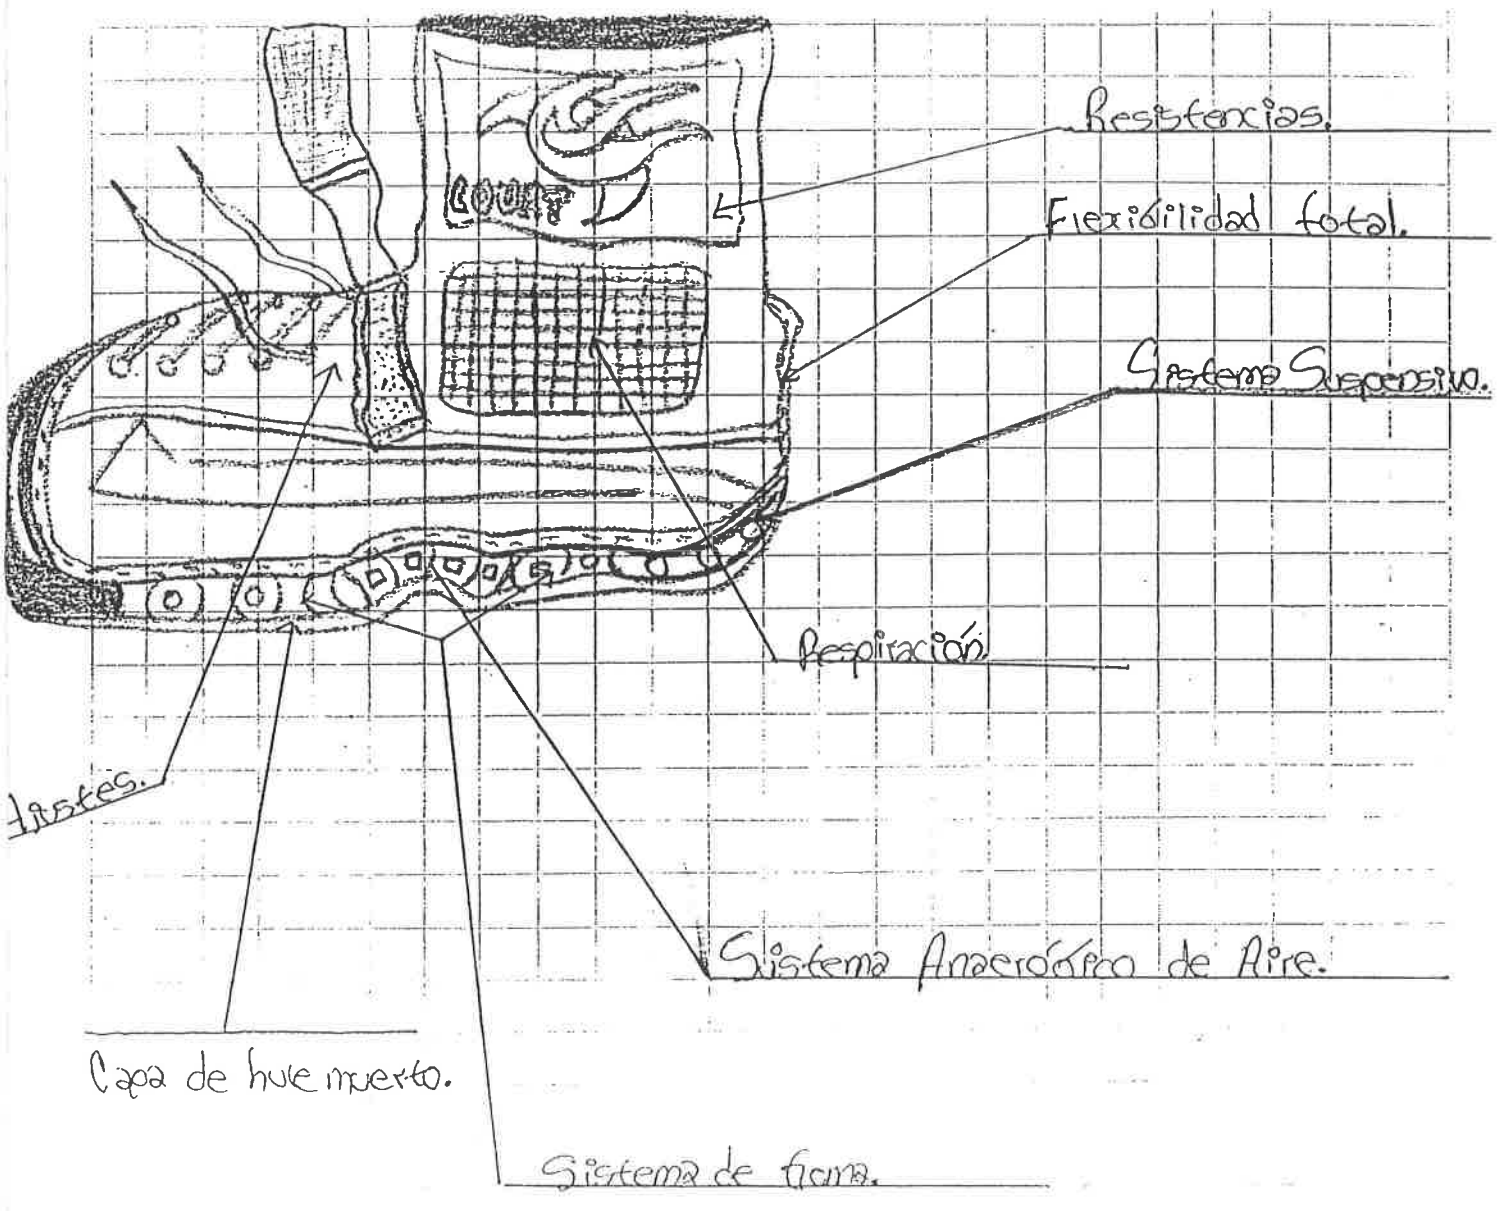 Resistencias.
COUNT
Flexibilidad total.
Sistema Suspensivo.
Respiración.
Ajustes.
Sistema Anaeróbico de Aire.
Capa de hule muerto.
Sistema de